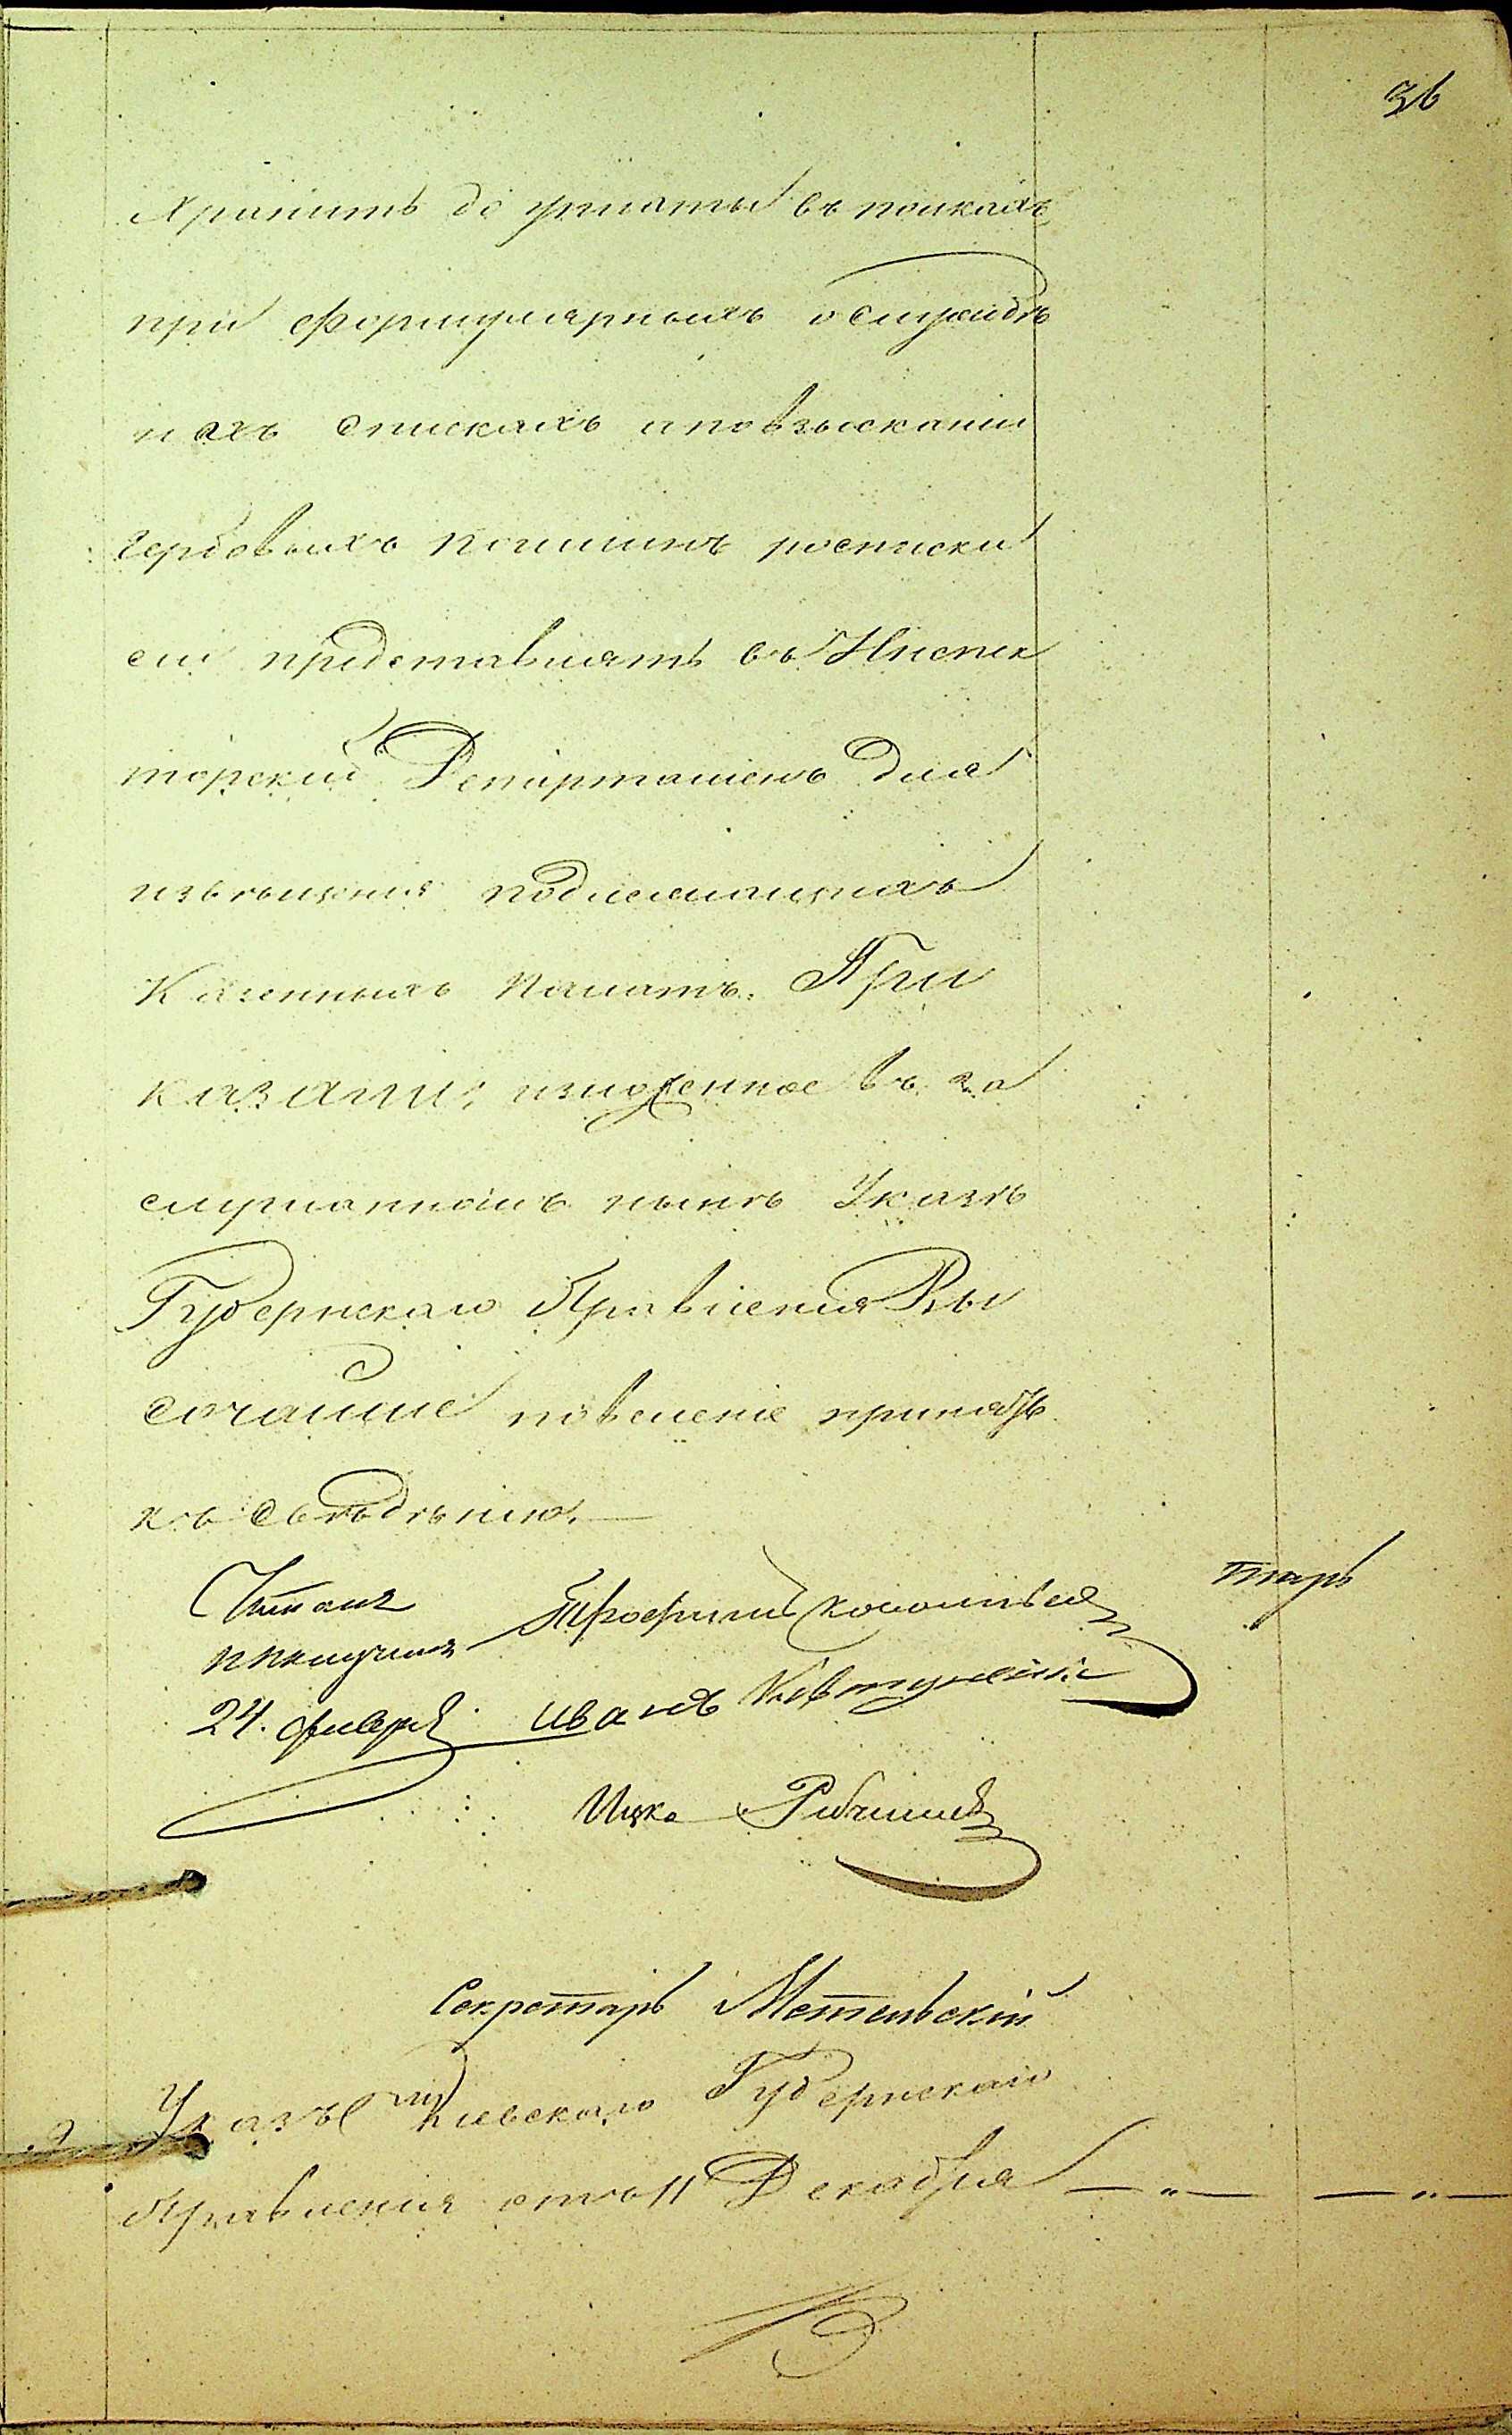 36
хранить до уплаты въ полкахъ
при формулярныхъ о службѣ
ихъ спискахъ и по взысканіи
гербовыхъ пошлинъ росписки
сіи представлять въ Инспек
торскій Департаментъ для
извѣщенія подлежащихъ
Казенныхъ палатъ. При
казали: изложенное въ за
слушанномъ нынѣ Указѣ
Губернскаго Правленія Вы
сочайшее повеленіе принять
къ свѣденію.
Читалъ
24. февраля Иванъ
Ицко
тарь
Секретарь Метельскій
Указъ Кіевскаго Губернскаго
Правленія отъ 11 Декабря